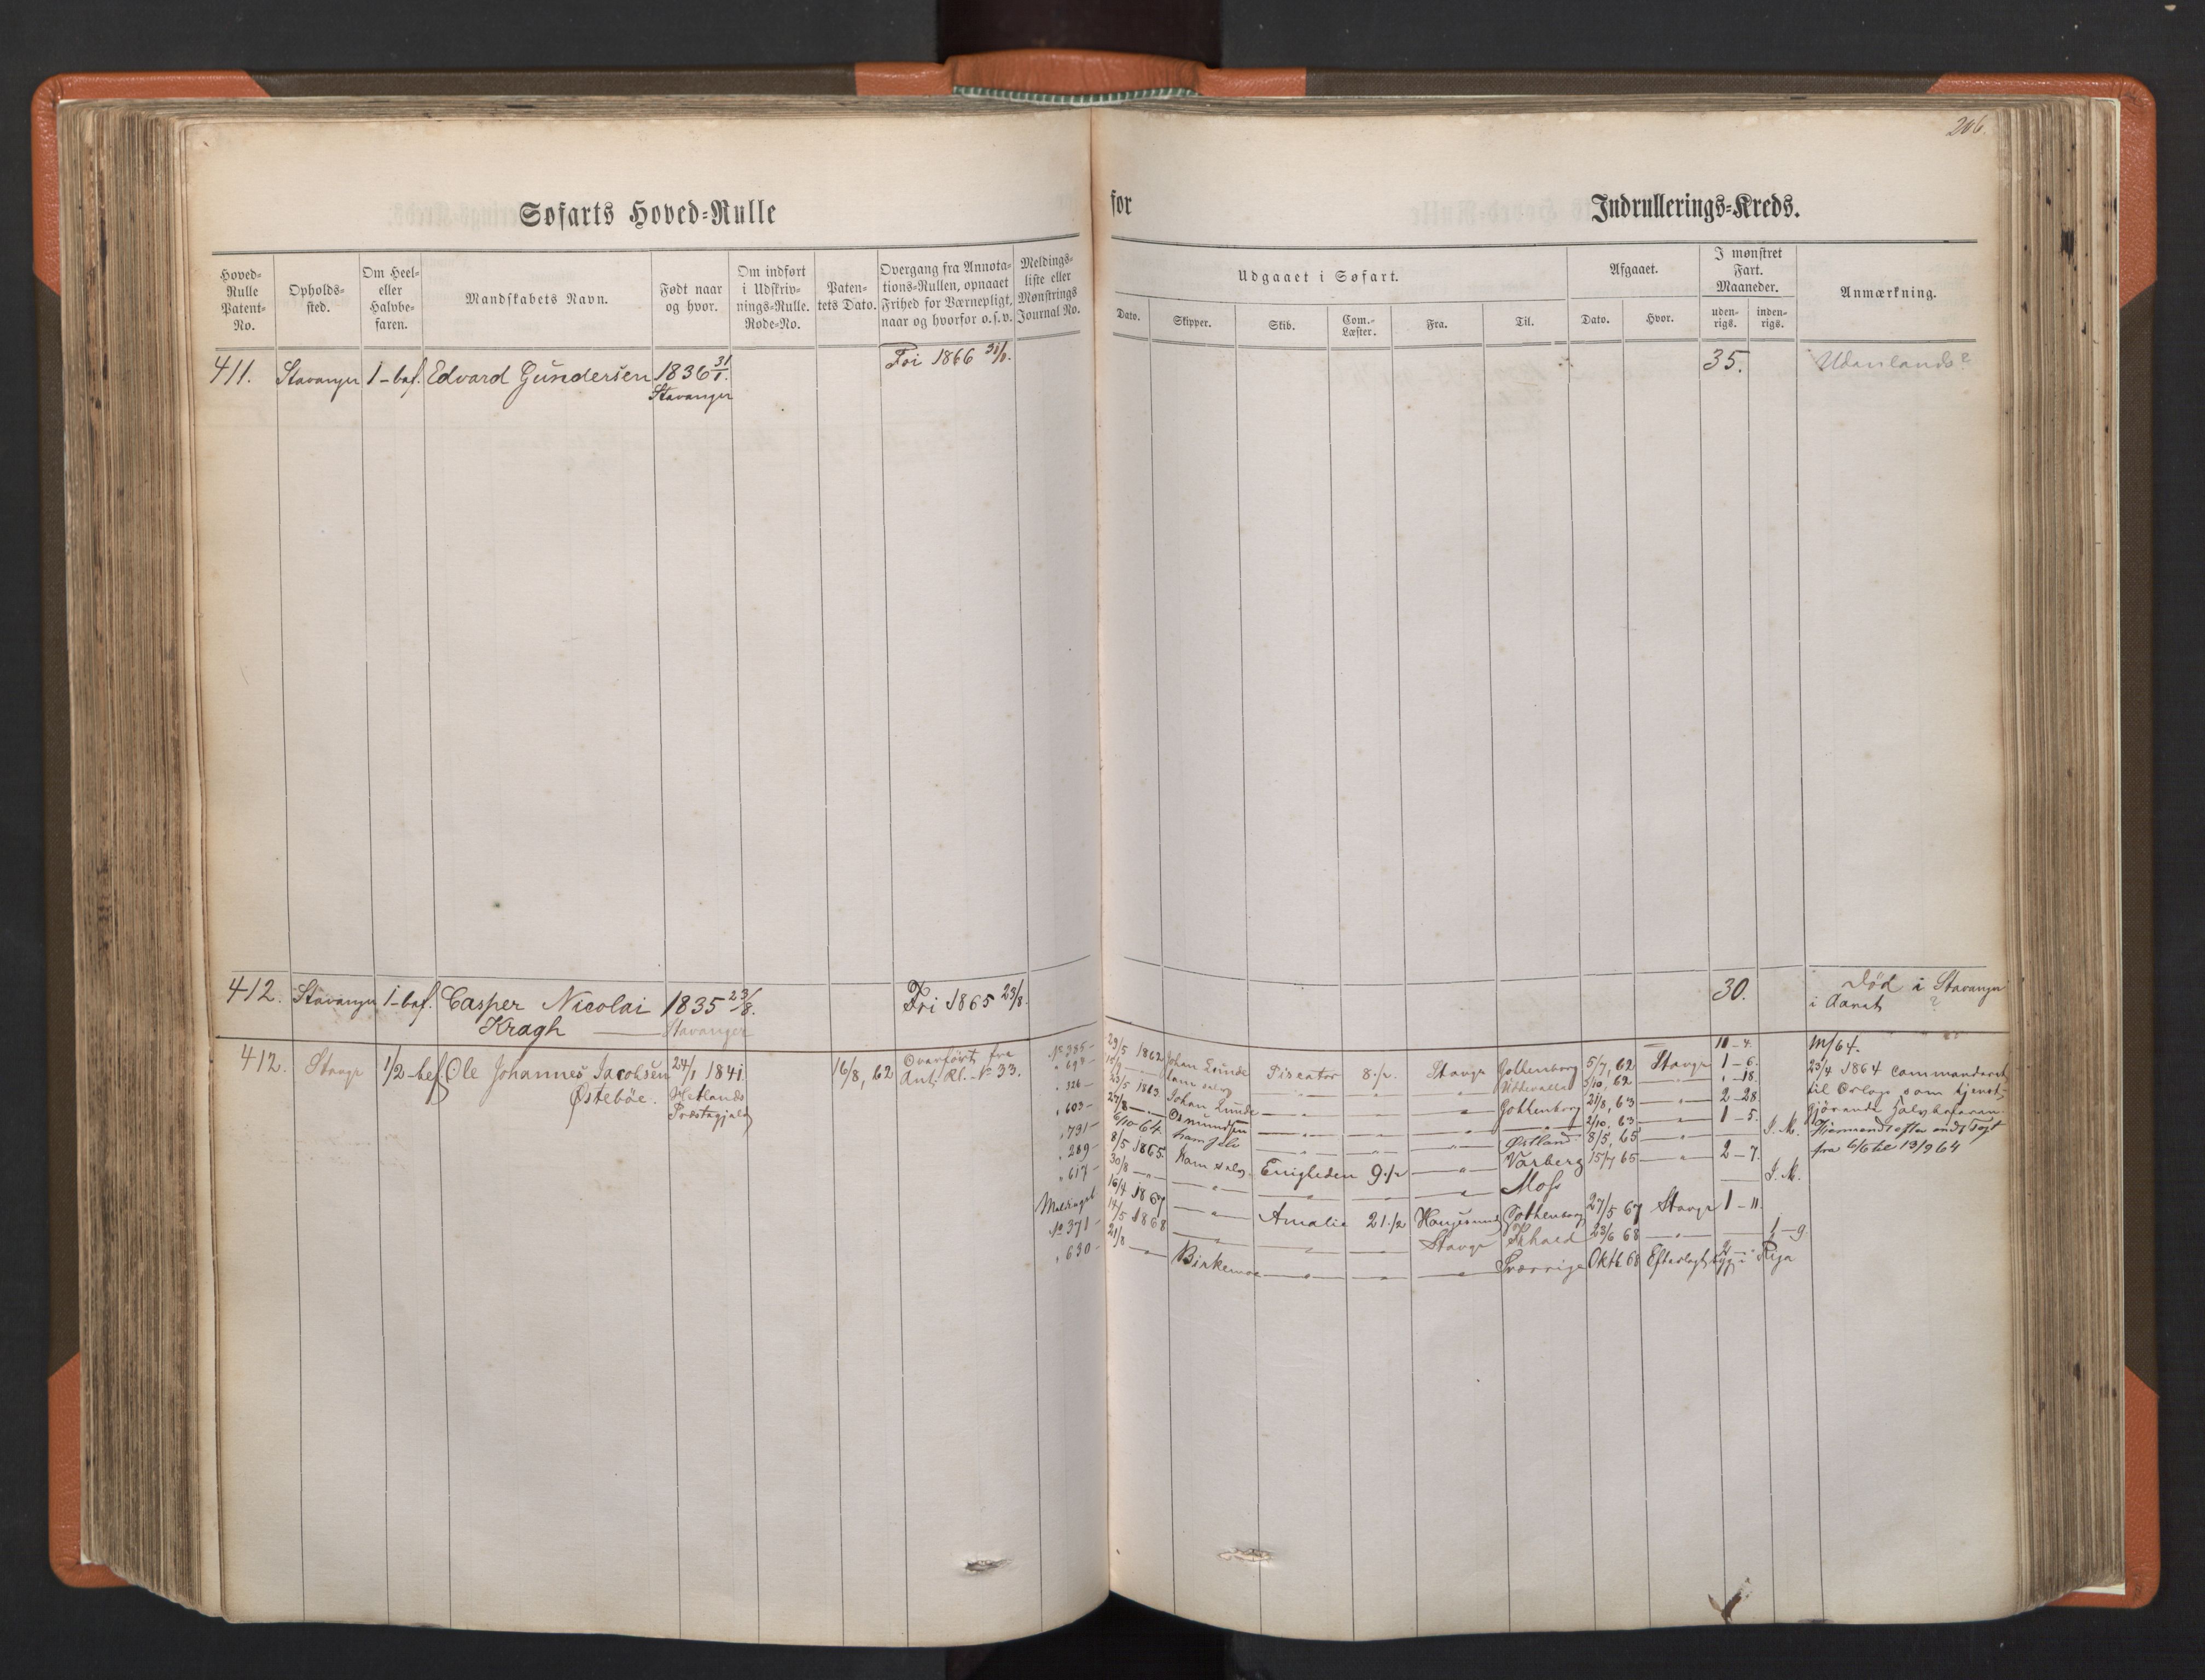 206.
Søfarts Hoved-Rulle
for
Indrullerings-Kreds.
Hoved-Rulle Patent-No.
Opholds-sted.
Om Heel- eller Halvbe-faren.
Mandskabets Navn.
Født naar og hvor.
Om indført i Udskriv-nings-Rulle. Rode-No.
Paten-tets Dato.
Overgang fra Annota-tions-Rullen, opnaaet Frihed for Værnepligt, naar og hvorfor o.s.v.
Meldings-liste eller Mønstrings Journal No.
Udgaaet i Søfart.
Dato.
Skipper.
Skib.
Com.-Læster.
Fra.
Til.
Afgaaet.
Dato.
Hvor.
I mønstret Fart. Maaneder.
uden-rigs.
inden-rigs.
Anmærkning.
411. Stavanger 1-bef. Edvard Gundersen 1836 31/1. Fri 1866 31/1. 35. Udenlands?
Stavanger
412. Stavanger 1-bef. Casper Nicolai 1835 23/8. Fri 1865 23/8. 30. Død i Stavanger
Kragh — Stavanger i Aaret ?
412. Stavgr 1/2-bef Ole Johannes Jacobsen 24/1 1841. 16/8, 62 Overført fra
Østebøe. Hetlands Ant. Rl. No 33.
Præstegjeld
No 385- 29/5 1862 Johan Lunde Piscator 8 1/2. Stavgr Gothenborg 5/7, 62 Stavgr 1-6.
" 698- Ham selv Uddevalla 5/10, 62 — " — 1-18.
" 326- 23/5 1863. Johan Lunde — " — Gothenborg 21/8, 63 — " — 2-28.
" 603- 27/8 — " — Osmundsen — " — 2/10, 63 — " — 1-5.
" 791- 6/10 64. ham selv — " — Østland 8/5, 65 — " — I. M.
" 289- 8/5 1865. Ham selv. Enigheden 9 1/2 — " — Varberg 15/7 65 — " — 2-7.
" 617- 30/8 — " — — " — Moss I. M.
16/4 1867 — " — Amalie 21 1/2 Haugesund Gothenborg 27/5 67 Stavgr 1-11.
No 371- 14/5 1868 — " — Stavgr 23/6 68 — " — 1-9.
" 630- 21/8 — " — Birkemoe — " — Sverrige Oktb. 68 Riga
11-4.
M/64.
23/4 1864 commanderet
til Orlogs som tjenst-
gjørende Halvbefaren.
Hjemsendt efter endt Togt
fra 6/6 til 13/9 64